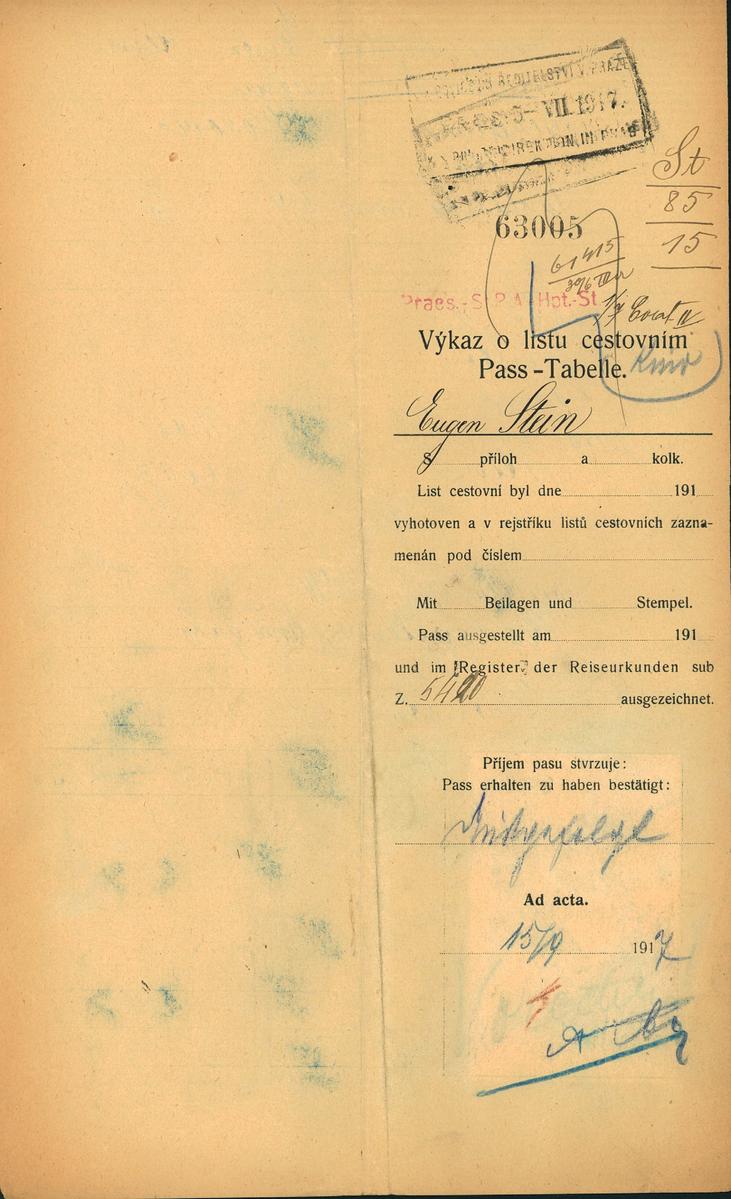 ŘEDITELSTVÍ V PRAZE
VII. 1917.
IN PRAG
St
85
15
63005
61415
Praes.-St. P. A. Hpt.-St
Výkaz o listu cestovním
Pass-Tabelle.
Eugen Stein
S příloh a kolk.
List cestovní byl dne 191
vyhotoven a v rejstříku listů cestovních zazna-
menán pod číslem
Mit Beilagen und Stempel.
Pass ausgestellt am 191
und im Register der Reiseurkunden sub
Z. 5420 ausgezeichnet.
Příjem pasu stvrzuje:
Pass erhalten zu haben bestätigt:
Ad acta.
15/9 1917